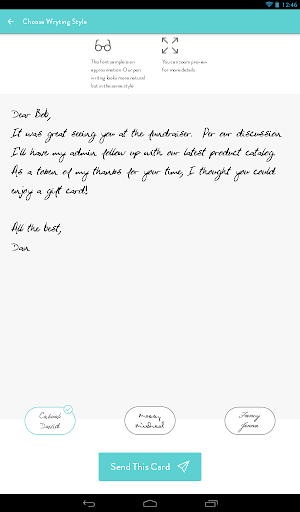 12:46
Choose Wryting Style
The font sample is an
approximation. Our pen
writing looks more natural
but in the same style
You can zoom preview
for more details
Dear Bob,
It was great seeing you at the fundraiser. Per our discussion
I'll have my admin follow up with our latest product catalog.
As a token of my thanks for your time, I thought you could
enjoy a gift card!
All the best,
Dan
Casual
David
Messy
Micheal
Fancy
Jenna
Send This Card